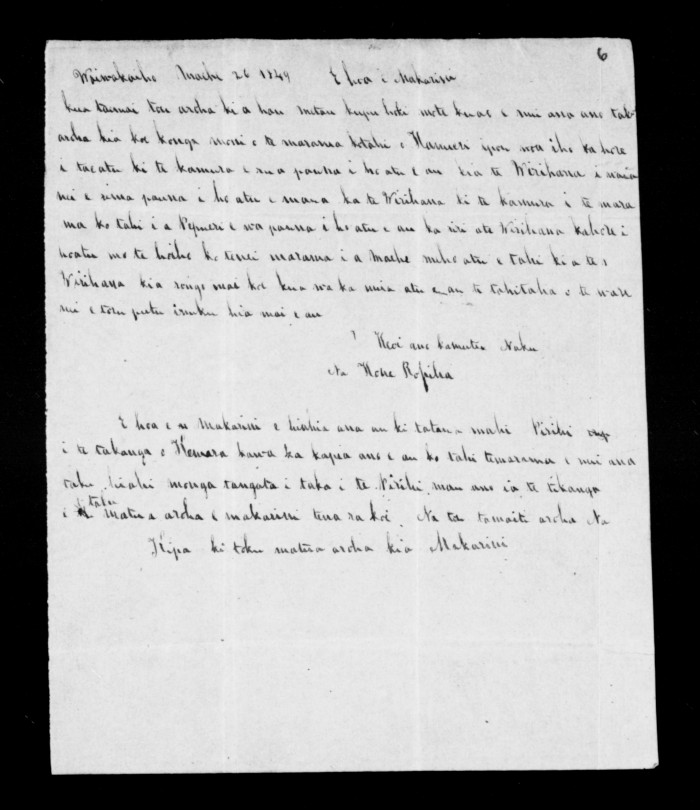 6
Waiwakaiho Maehe 26 1849 E hoa i Makarini
kua taemai tou aroha ki a hau mo te kuao e nui ana ano taku
aroha kia koe ko nga moni o te marama kotahi o
i hoatu ki te kamura e rua pauna i hoatu e au kia te Wirihana i
nei e rima pauna i hoatu e maua ko te Wirihana ki te kamura i te mara
ma ko tahi i a Pepueri e wa pauna i ho atu e au ka riri ate Wirihana kahore i
hoatu mo te hoiho ko tenei marama i a Maehe me ho atu e tahi ki a te
Wirihana kia rongo mai koe kua wa ka mia atu e au te tahitaha o te ware
nei e toru putu i nuku hia mai e au
Heoi ano kamutu Naku
Na Hone Ropiha
E hoa e u Makarini e hiahia ana au ki tatana mahi Pirihi
i te takanga o kawa ka kapia ano e au ko tahi te marama e nui ana
taku hiahi mo nga tangata i taka i te Pirihi mau ano ia te tikanga
i taku matua aroha e makarini tena ra koe Na tau tamaiti aroha Na
Kipa ki toku matua aroha kia Makarini